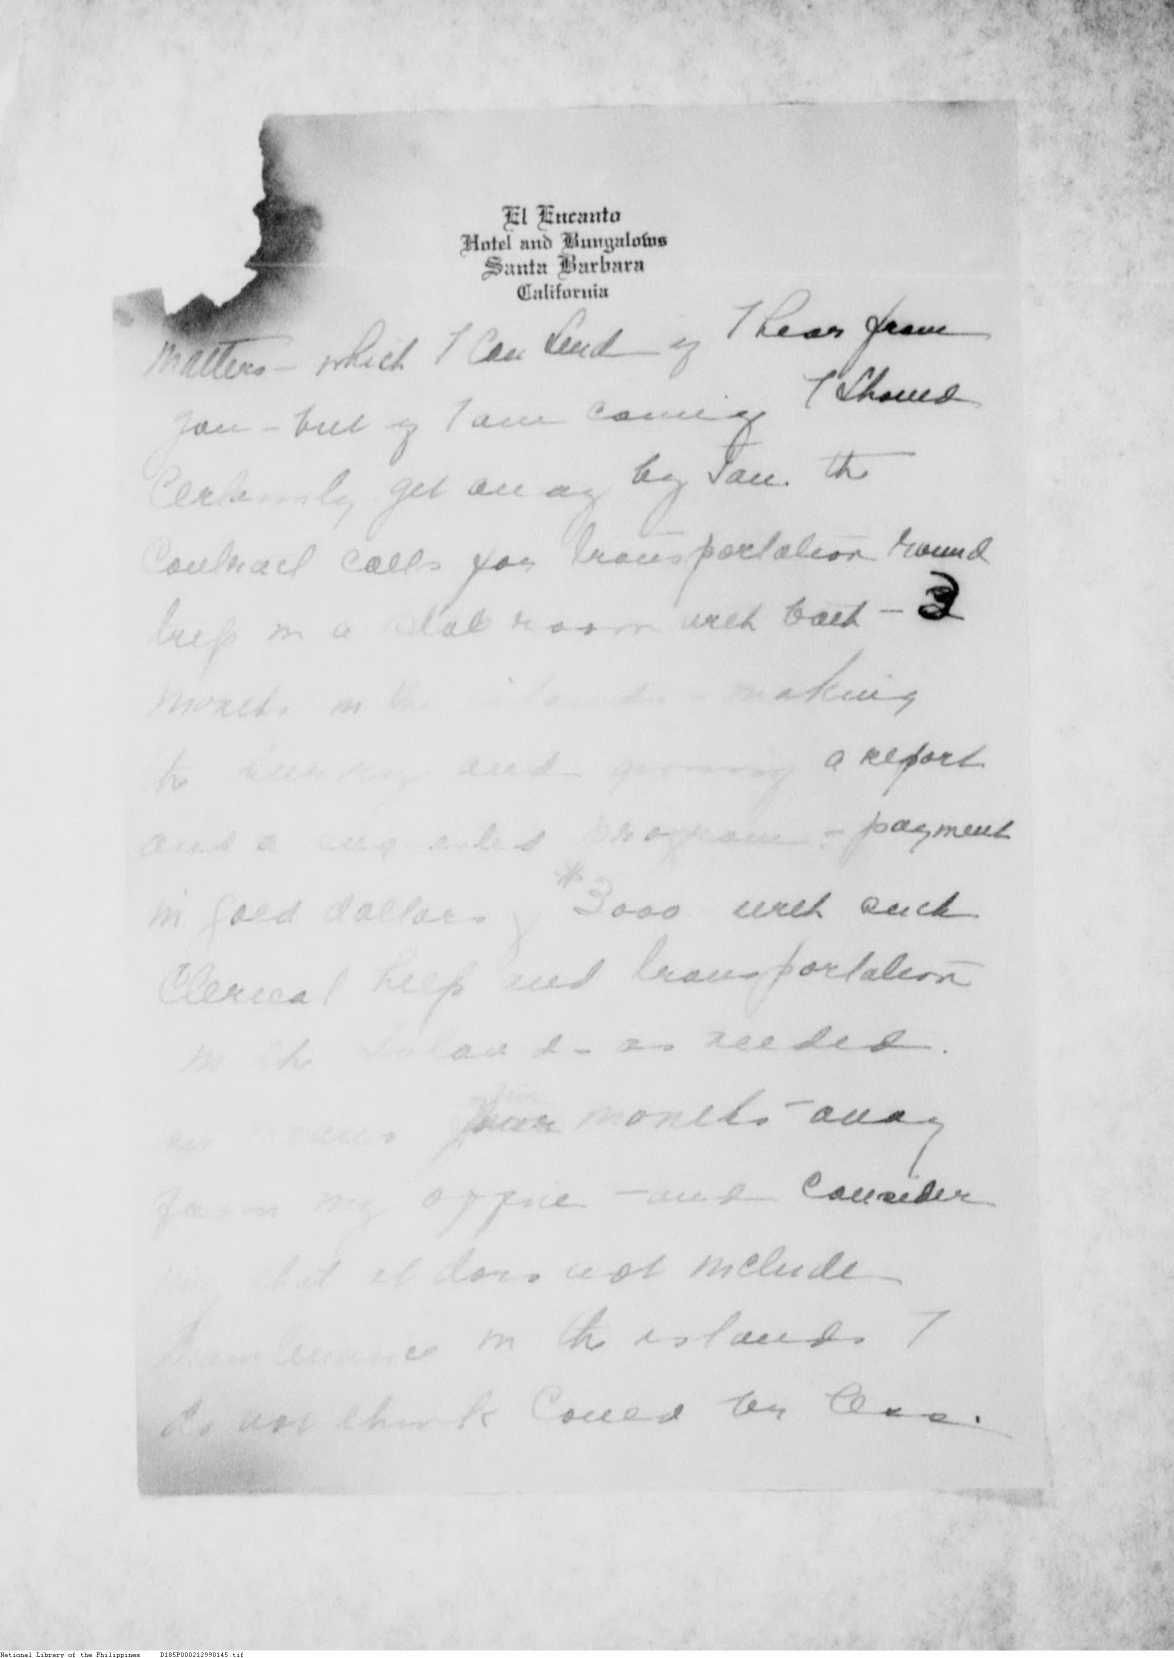 El Encanto
Hotel and Bungalows
Santa Barbara
California
matters – which I can send if I hear from
you – but if I am coming I should
certainly get away by Jan. the
contract calls for transportation round
trip in a state room with bath – 3
months in the islands – making
the survey and giving a report
and a suggested program – payment
in gold dollars of $3000 with such
clerical help and transportation
in the islands – as needed.
means four months – away
from my office – and consider
ing that it does not include
maintenance in the islands I
do not think could be less.
National Library of the Philippines D185P000212990145.tif